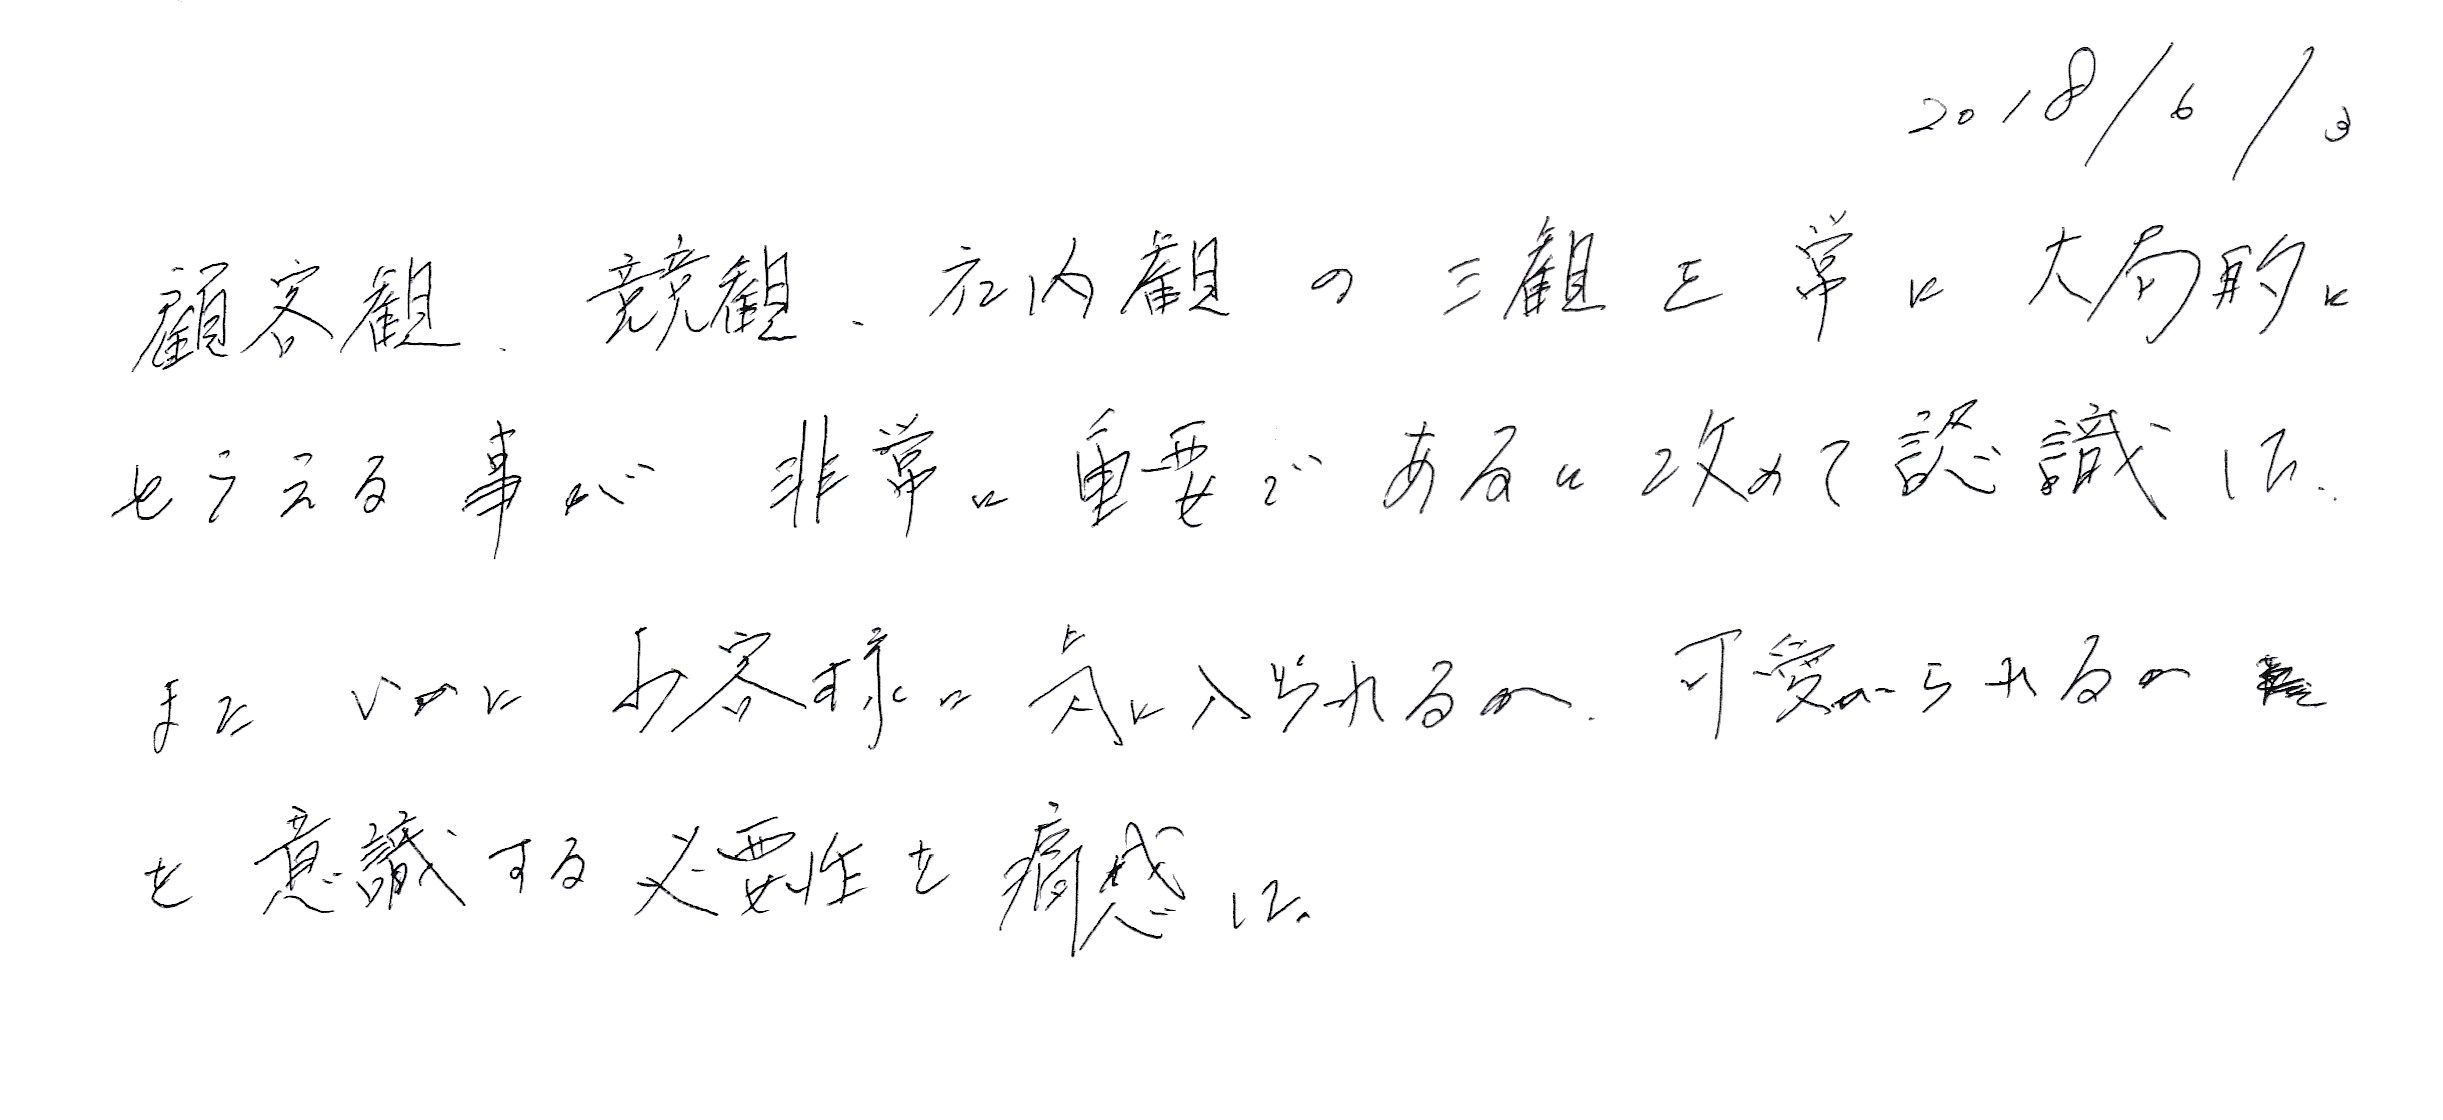 2018/6/3
顧客観、競観、社内観の三観を常に大局的に
とらえる事が非常に重要であるに改めて認識した。
またいかにお客様に気に入られるか、可愛がられるか
を意識する必要性を痛感した。